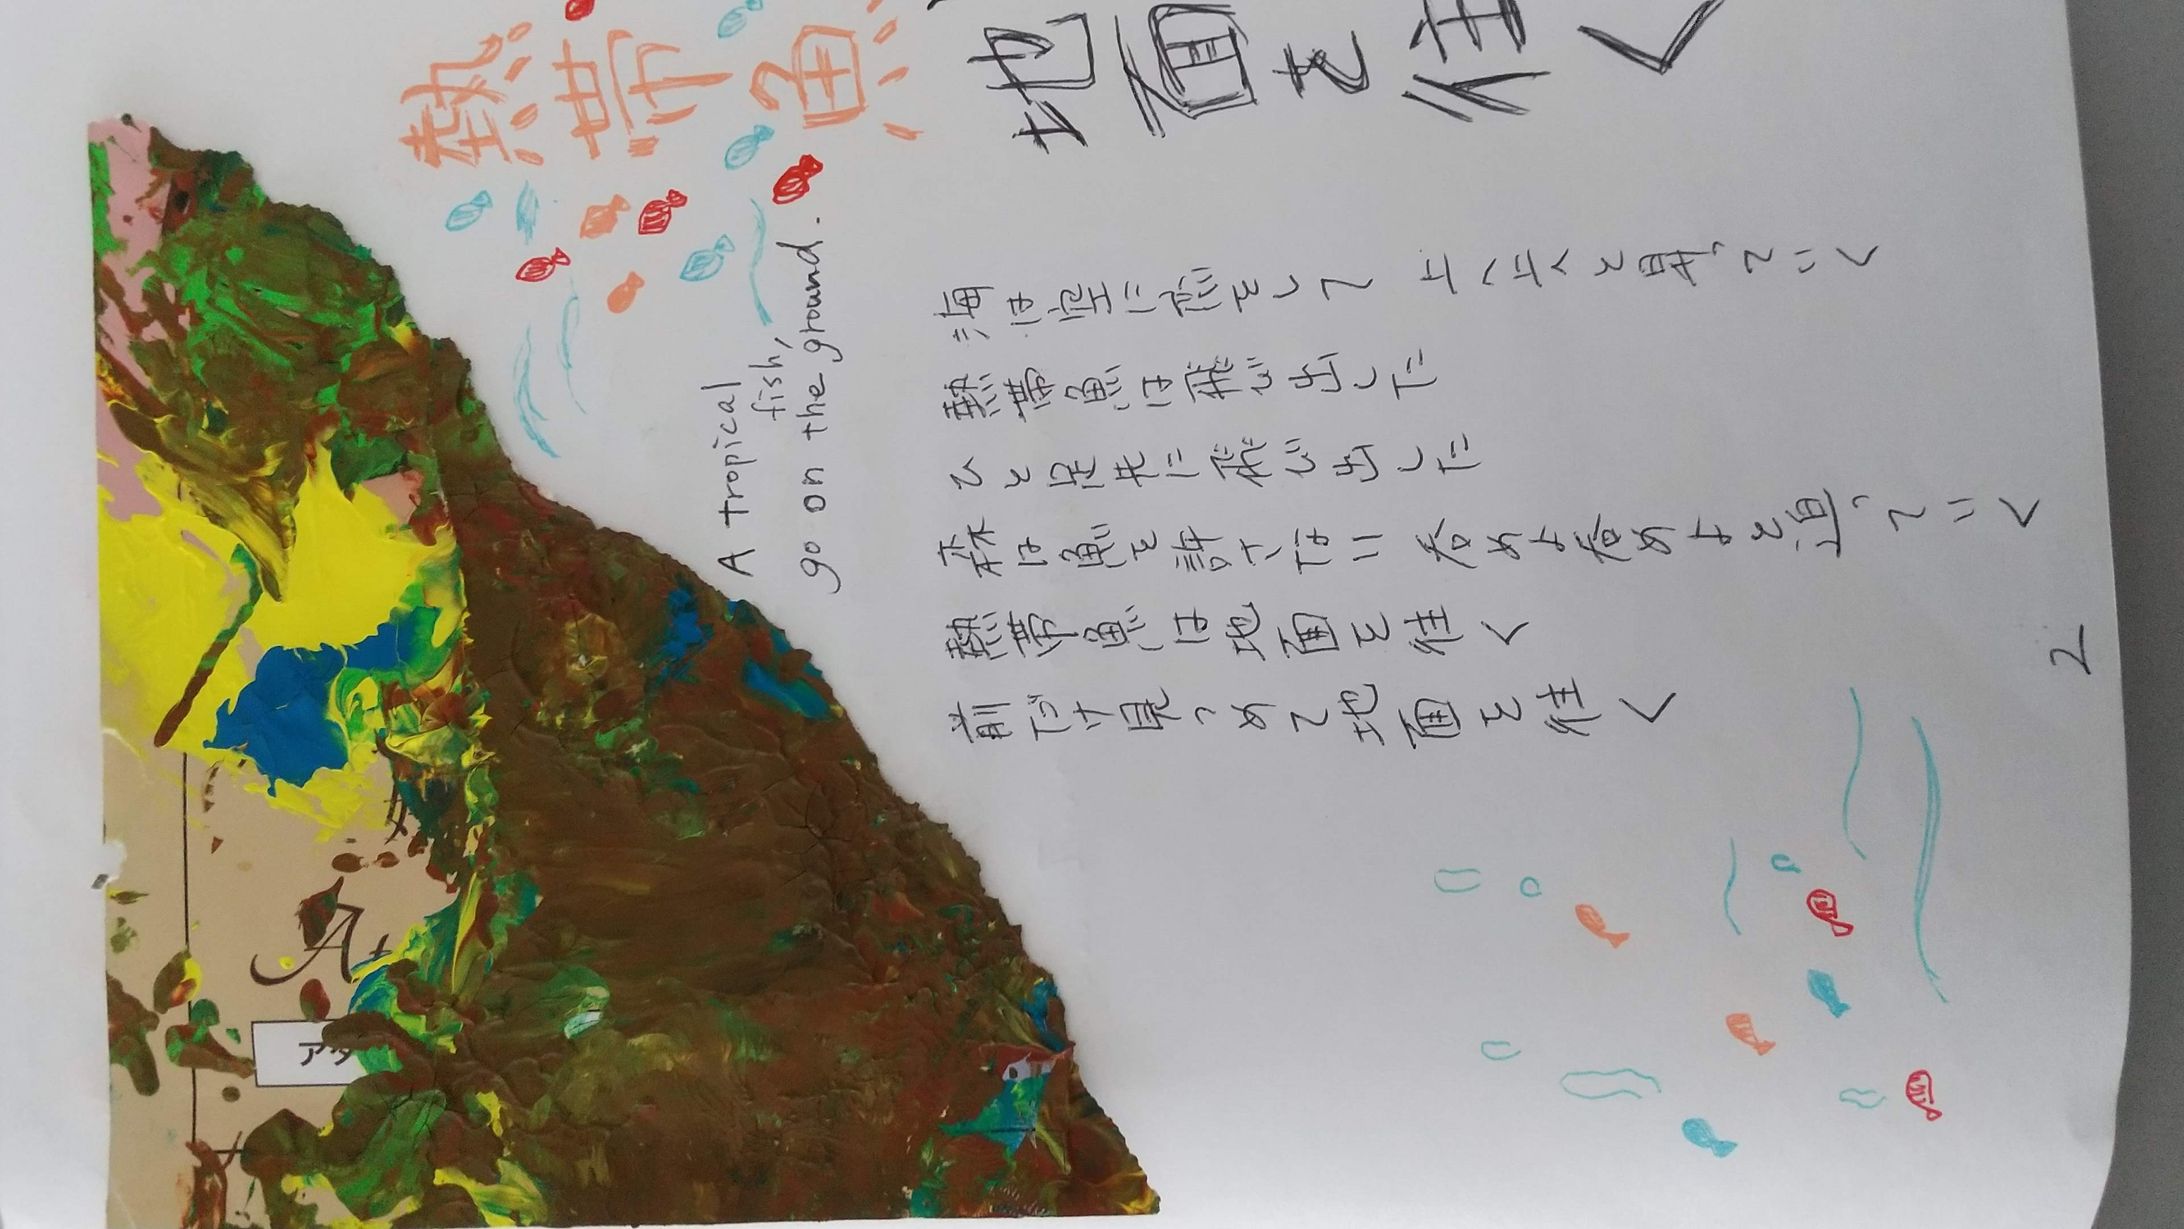 熱帯魚
地面を往く
A tropical
fish,
go on the ground.
海は空に恋をして 上へ上へと昇っていく
熱帯魚は飛び出した
ひと足先に飛び出した
森は魚を許さない 呑めよ呑めよと追っていく
熱帯魚は地面を往く
前だけ見つめて地面を往く
2
アタ